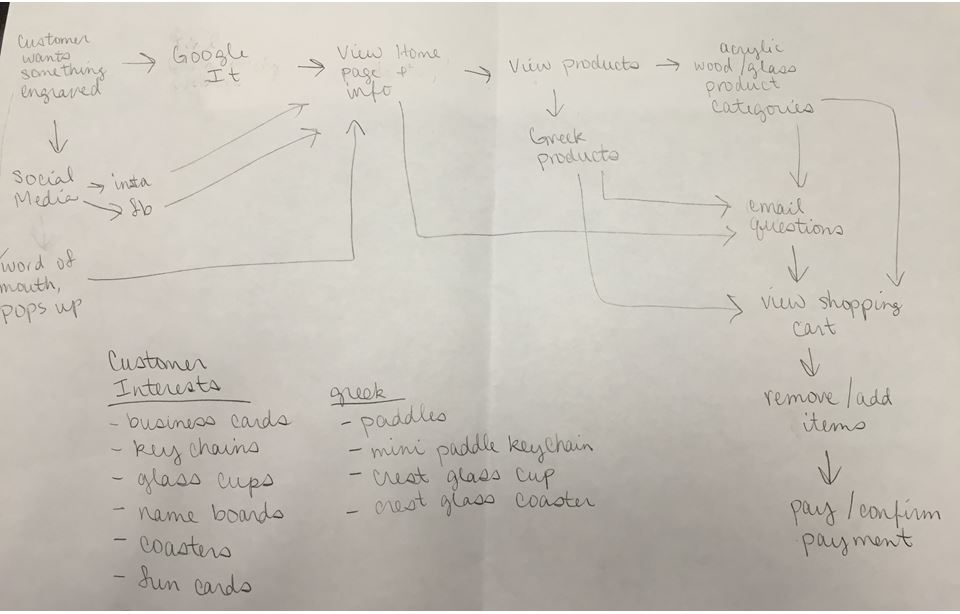 Customer
wants
something
engraved
Google
It
View Home
page +
info
View products
acrylic
wood/glass
product
categories
Greek
products
Social
Media
insta
fb
email
questions
word of
mouth,
pops up
view shopping
cart
remove/add
items
pay/confirm
payment
Customer
Interests
- business cards
- key chains
- glass cups
- name boards
- coasters
- fun cards
greek
- paddles
- mini paddle keychain
- crest glass cup
- crest glass coaster